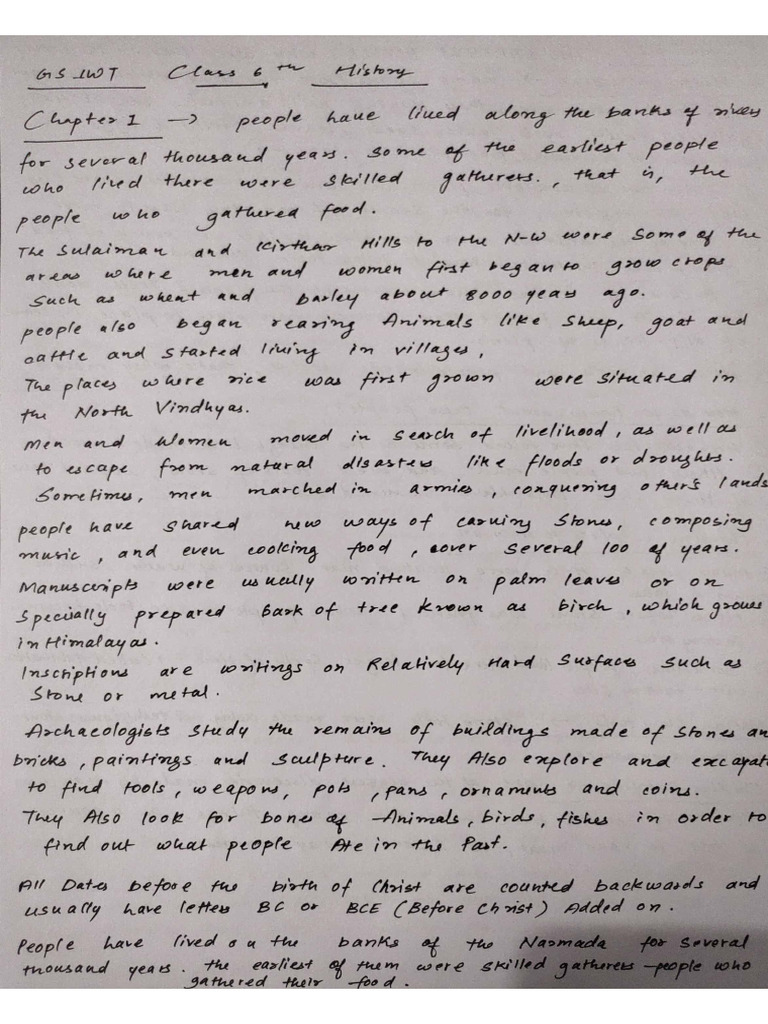 GS_IWT Class 6th History
Chapter 1 → people have lived along the banks of rivers
for several thousand years. Some of the earliest people
who lived there were skilled gatherers., that is, the
people who gathered food.
The Sulaiman and Kirthar Hills to the N-W were Some of the
areas where men and women first began to grow crops
Such as wheat and barley about 8000 years ago.
people also began rearing Animals like sheep, goat and
cattle and started living in villages,
The places where rice was first grown were situated in
the North Vindhyas.
Men and Women moved in search of livelihood, as well as
to escape from natural disasters like floods or droughts.
Sometimes, men marched in armies, conquering other's lands
people have shared new ways of carving stones, composing
music, and even cooking food, over several 100 of years.
Manuscripts were usually written on palm leaves or on
Specially prepared bark of tree known as birch, which grows
in Himalayas.
Inscriptions are writings on Relatively Hard Surfaces such as
Stone or metal.
Archaeologists study the remains of buildings made of stones an
bricks, paintings and sculpture. They Also explore and excavat
to find tools, weapons, pots, pans, ornaments and coins.
They Also look for bones of Animals, birds, fishes in order to
find out what people Ate in the Past.
All Dates before the birth of Christ are counted backwards and
usually have letters BC or BCE (Before Christ) Added on.
People have lived on the banks of the Narmada for several
thousand years. the earliest of them were skilled gatherers - people who
gathered their food.